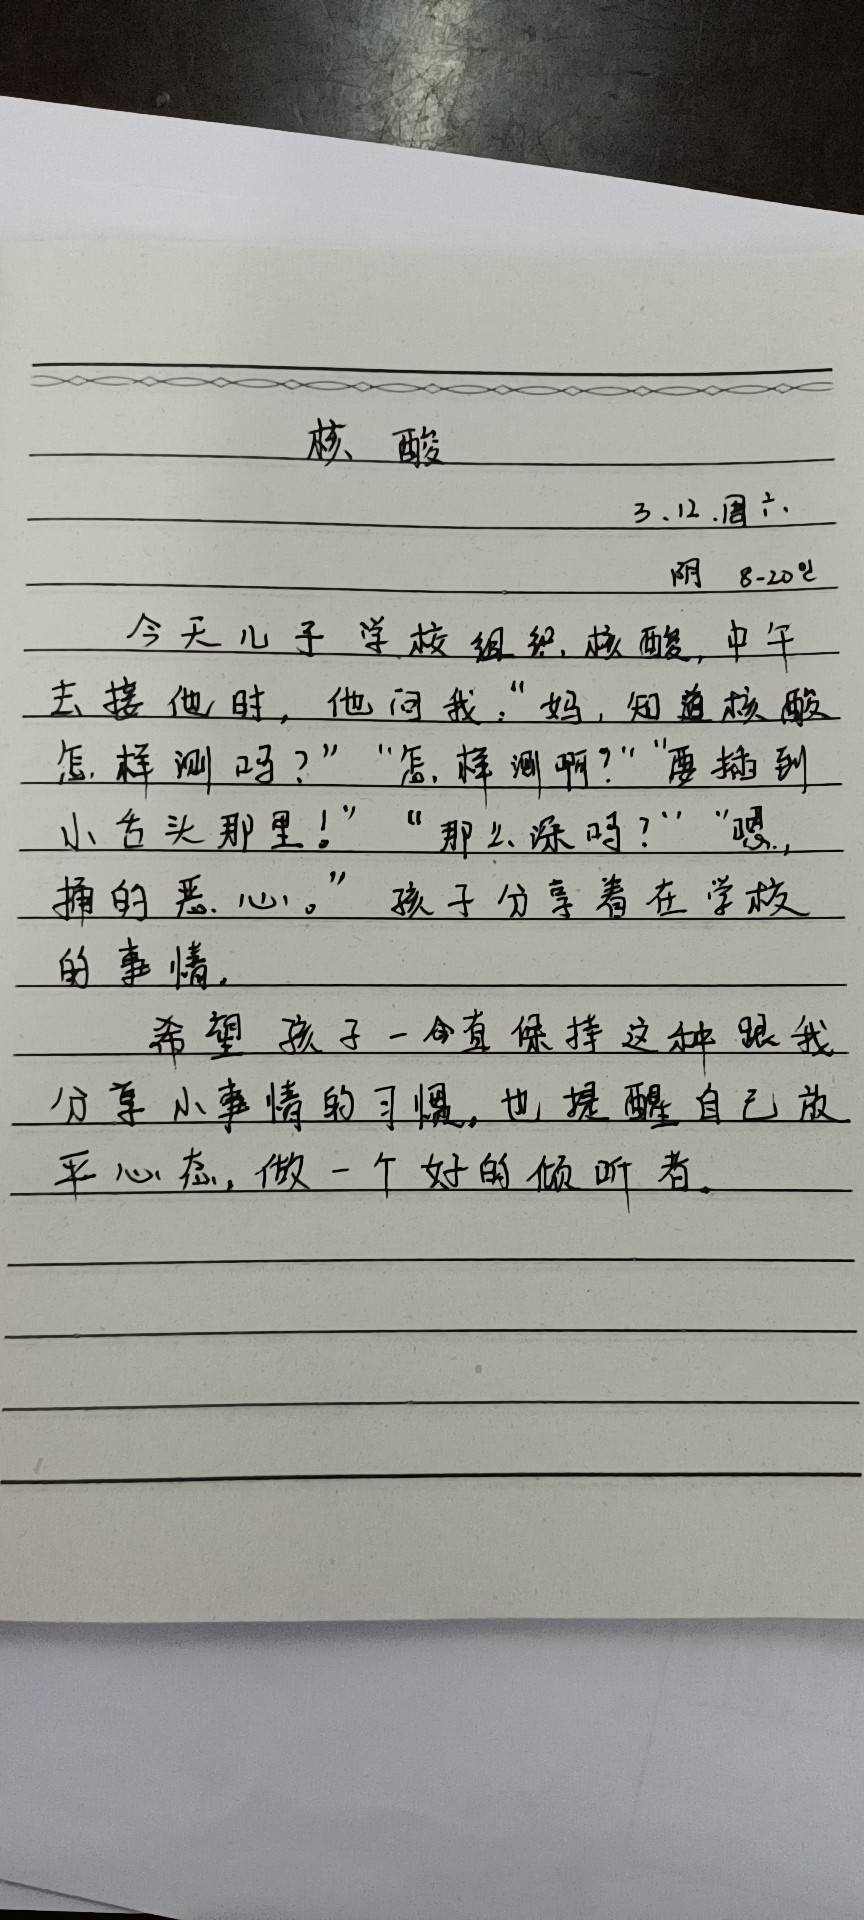 核酸
3.12.周六.
阴 8-20℃
今天儿子学校组织核酸,中午
去接他时,他问我:“妈,知道核酸
怎样测吗?”“怎样测啊?”“要插到
小舌头那里!”“那么深吗?”“嗯,
捅的恶心。”孩子分享着在学校
的事情。
希望孩子一直保持这种跟我
分享小事情的习惯,也提醒自己放
平心态,做一个好的倾听者。